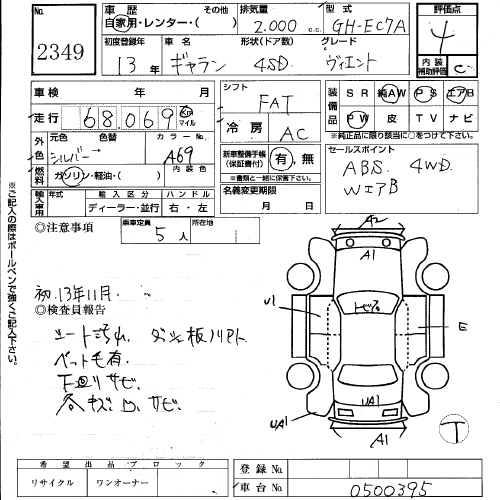 No. 2349
車歴 自家用・レンター・( ) その他
排気量 2.000 c.c.
型式 GH-EC7A
評価点 4
初度登録年 13年
車名 ギャラン
形状(ドア数) 4SD
グレード ヴィエント
内装補助評価 C
車検 年 月
シフト FAT
装備品 SR 純AW PS エアB
PW 皮 TV ナビ
※純正品に限り該当に○をつけて下さい。
走行 68.069 Km マイル
冷房 AC
外色 元色 シルバー → 色替 カラーNo. A69
燃料 ガソリン・軽油・( ) 内装色
新車整備手帳(保証書付) 有, 無
※書類と一緒に保管して下さい。
セールスポイント
ABS 4WD
WエアB
輸入車用 年式 輸入区分 ハンドル
ディーラー・並行 右・左
名義変更期限 月 日
◎注意事項
乗車定員 5人
所在地
※ご記入の際はボールペンで強くご記入下さい。
初.13年11月.
◎検査員報告
シート汚れ ダッシュ板ハガレ
ペット毛有.
下回りサビ
各キズ凹.サビ.
A2
A1
トビス
U1
E
UA1
UA1
A1
T
希望出品ブロック
リサイクル ワンオーナー
登録No.
車台No. 0500395